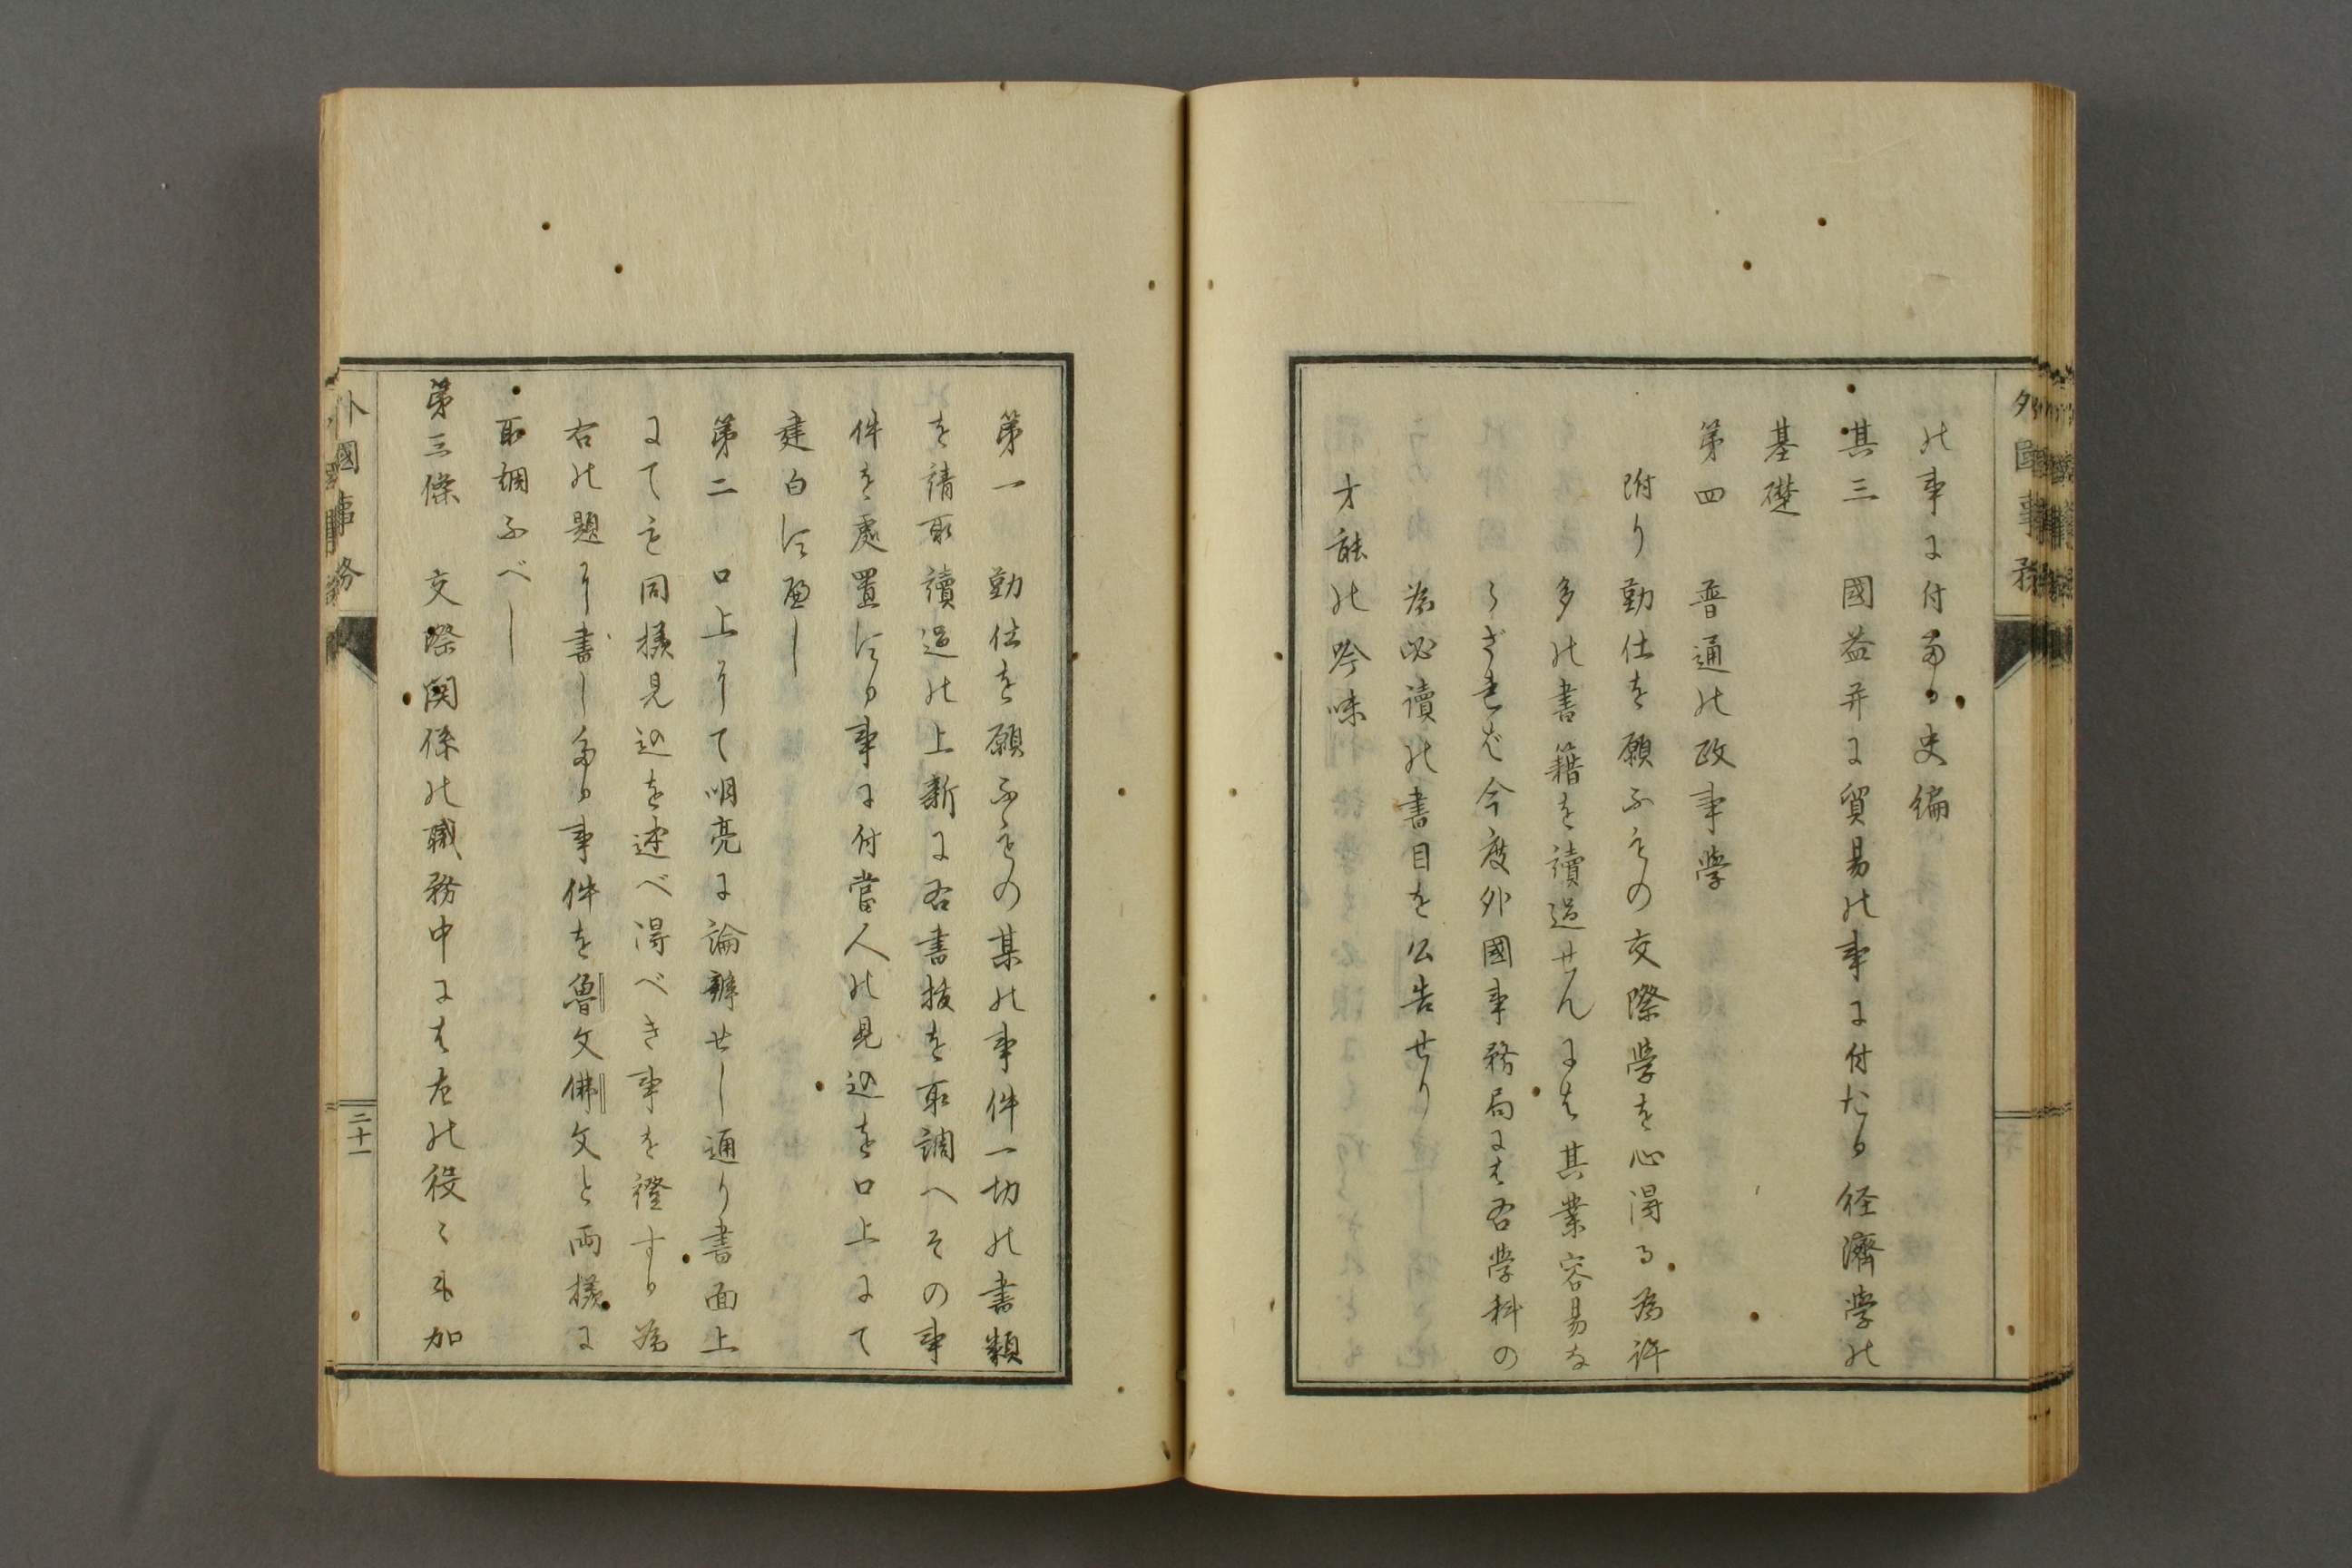 の事に付たる史編
其三　國益并に貿易の事に付たる経濟学の
基礎
第四　普通の政事学
附り勤仕を願ふもの交際学を心得る為許
多の書籍を讀過せんには其業容易な
らざれば今度外國事務局には各学科の
為必讀の書目を公告せり
才能の吟味
第一　勤仕を願ふもの某の事件一切の書類
を請取讀過の上新に右書抜を取調へその事
件を處置する事に付當人の見込を口上にて
建白す遍し
第二　口上にて明亮に論辨せし通り書面上
にても同様見込を述べ得べき事を證する為
右の題に書したる事件を魯文佛文と両様に
取調ふべし
第三條　交際関係の職務中には左の役々も加
外國事務
二十一